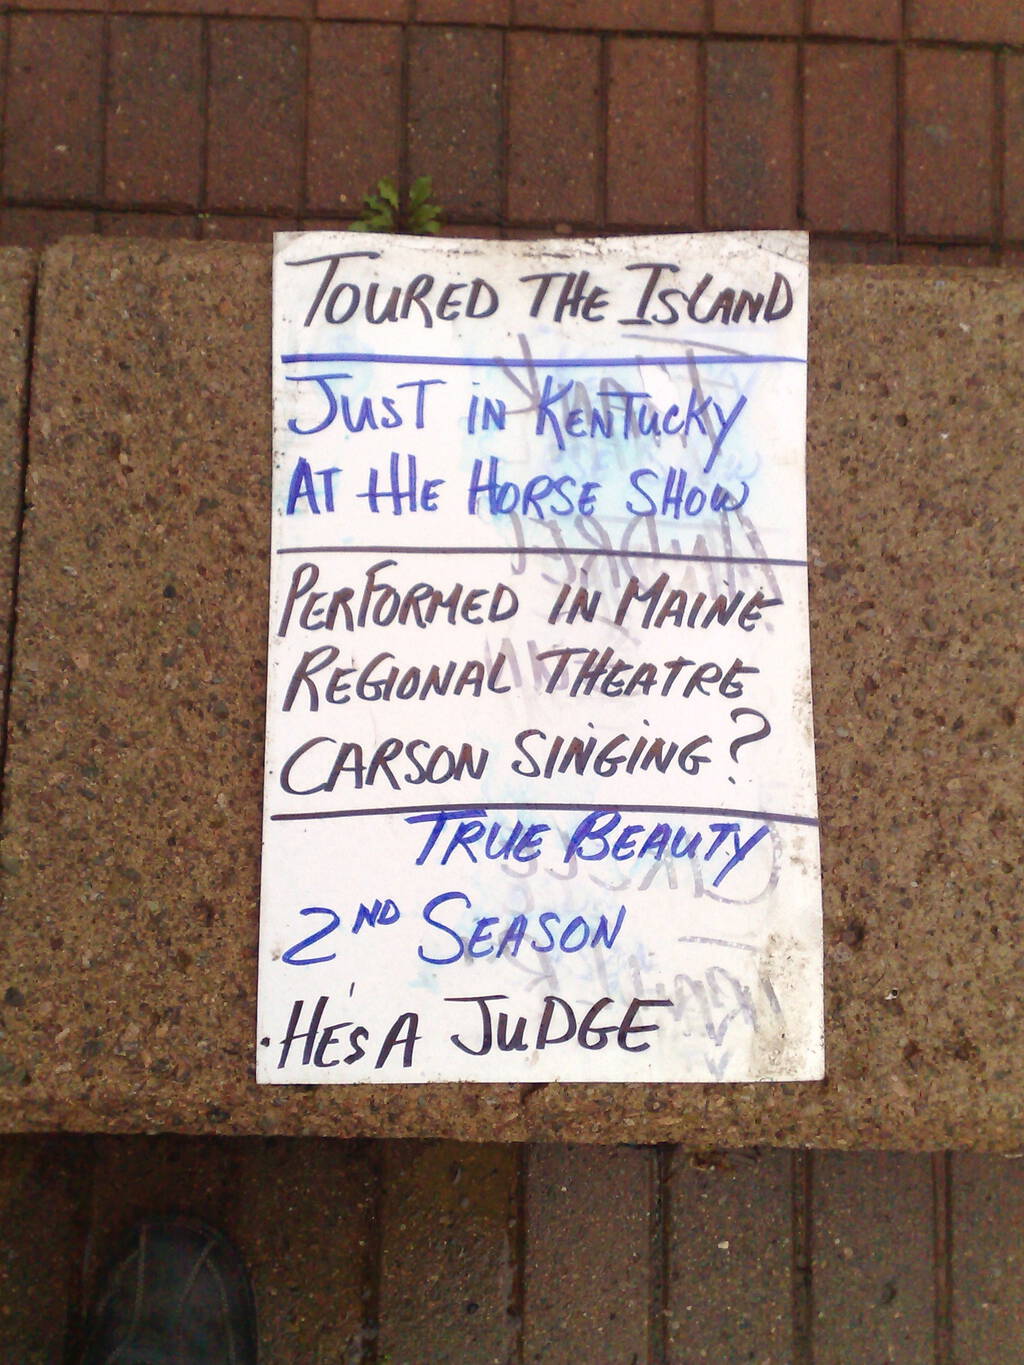 TOURED THE ISLAND
JUST IN KENTUCKY
AT THE HORSE SHOW
PERFORMED IN MAINE
REGIONAL THEATRE
CARSON SINGING?
TRUE BEAUTY
2ND SEASON
·HE'S A JUDGE